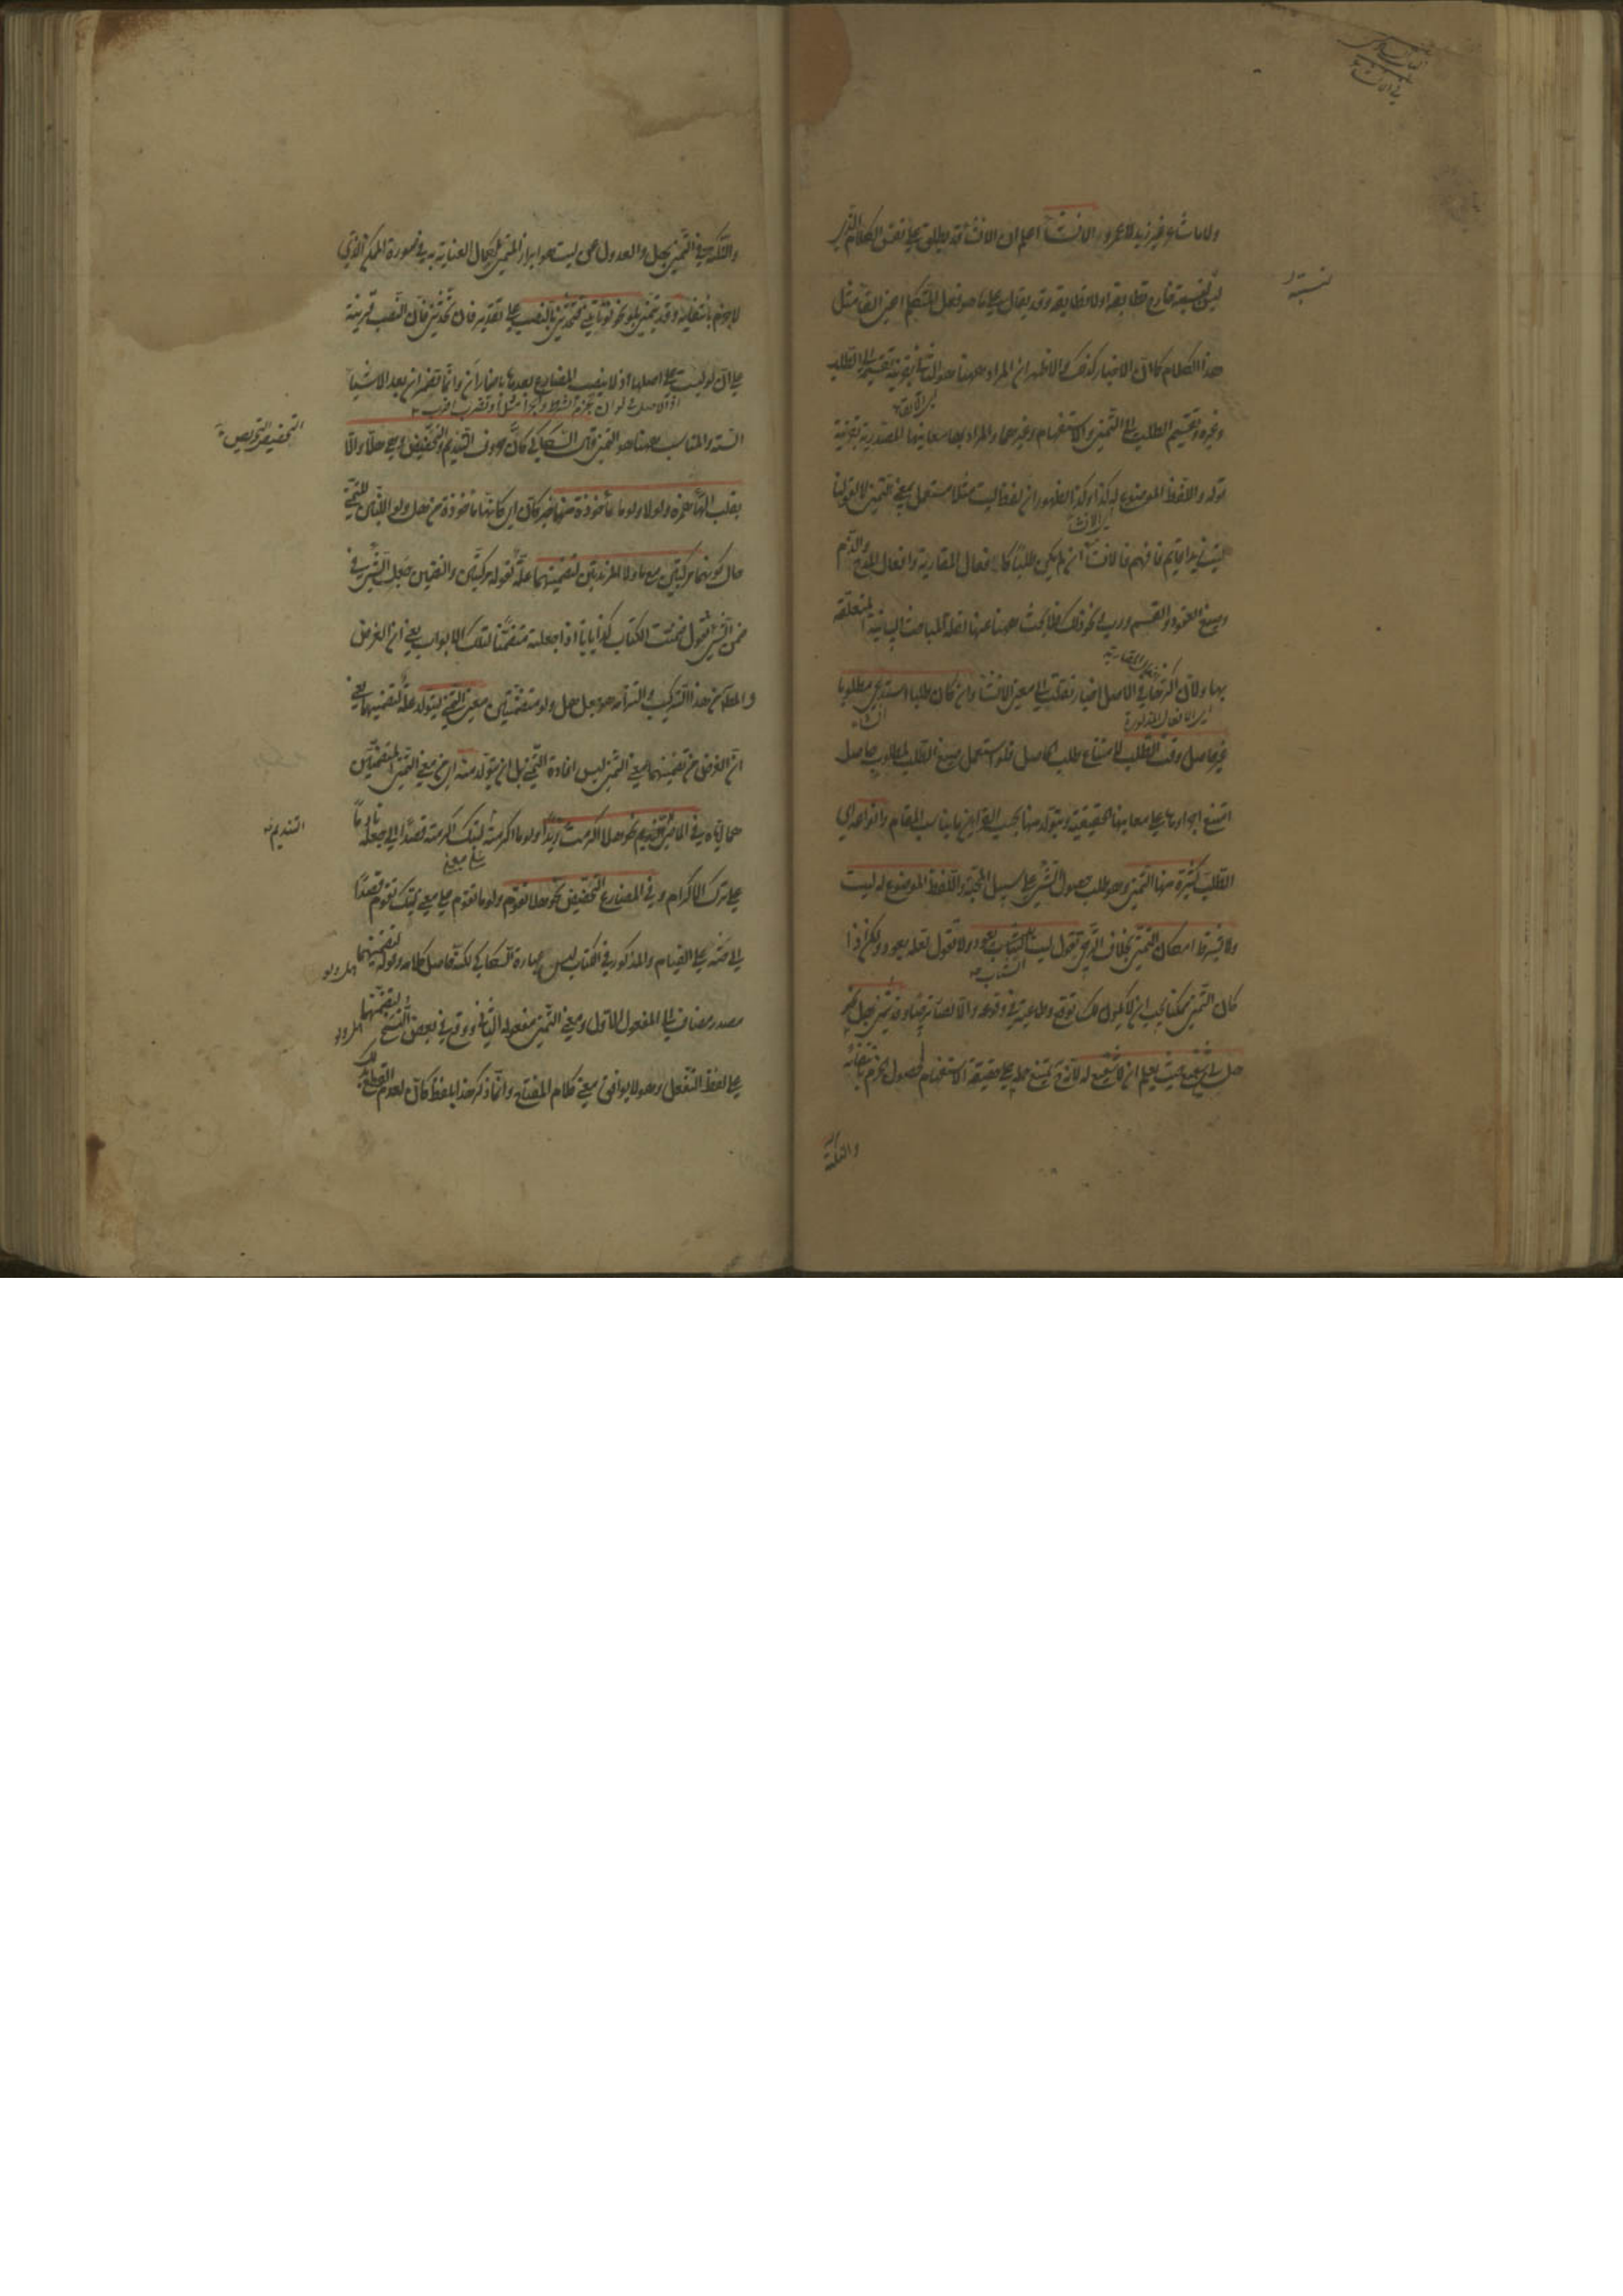 ولا ما شاعر غير زيد ولا عمرو الانشاء اعلم ان الانشاء قد يطلق على نفس الكلام الذي
ليس لنسبته خارج تطابقه او لا تطابقه وقد يقال على ما هو فعل المتكلم اعنى القاء مثل
هذا الكلام كما ان الاخبار كذلك والاظهر ان المراد ههنا هو الثانى بقرينة تقسيمه الى الطلب
وغيره وتقسيم الطلب الى التمنى والاستفهام وغيرهما والمراد بها معانيها المصدرية بقرينة
قوله واللفظ الموضوع له كذا وكذا لظهور ان لفظ ليت مثلا مستعمل لمعنى التمنى لا لقولنا
ليت زيدا قائم فافهم فالانشاء ان لم يكن طلبا كافعال المقاربة وافعال المدح والذم
وصيغ العقود والقسم ورب ونحو ذلك فلا يبحث ههنا عنها لقلة المباحث البيانية المتعلقة
بها ولان اكثرها فى الاصل اخبار نقلت الى معنى الانشاء وان كان طلبا استدعى مطلوبا
غير حاصل وقت الطلب لامتناع طلب الحاصل فلو استعمل صيغ الطلب لمطلوب حاصل
امتنع اجراؤها على معانيها الحقيقية ويتولد منها بحسب القرائن ما يناسب المقام وانواعه اى
الطلب كثيرة منها التمنى وهو طلب حصول الشئ على سبيل المحبة واللفظ الموضوع له ليت
ولا يشترط امكان التمنى بخلاف الترجى تقول ليت الشباب يعود ولا تقول لعله يعود ولكن اذا
كان التمنى ممكنا يجب ان لا يكون لك توقع وطماعية فى وقوعه والا لصار ترجيا وقد يتمنى بهل نحو
هل لى من شفيع حيث يعلم ان لا شفيع له لانه ح يمتنع حمله على حقيقة الاستفهام لحصول الجزم بانتفائه
والنكتة
والنكتة فى التمنى بهل والعدول عن ليت هو ابراز المتمنى لكمال العناية به فى صورة الممكن الذى
لا جزم بانتفائه وقد يتمنى بلو نحو لو تاتينى فتحدثنى بالنصب على تقدير فان تحدثنى فان النصب قرينة
على ان لو ليست على اصلها اذ لا ينصب المضارع بعدها باضمار ان وانما تضمر ان بعد الاشياء
الستة والمناسب ههنا هو التمنى قال السكاكى كان حروف التنديم والتحضيض وهى هلا والا
بقلب الهاء همزة ولولا ولوما مأخوذة منهما خبر كان اى كانها مأخوذة من هل ولو اللتين للتمنى
حال كونهما مركبتين مع ما ولا المزيدتين لتضمينهما علة لقوله مركبتين والتضمين جعل الشئ فى
ضمن الشئ تقول ضمنت الكتاب كذا بابا اذا جعلته متضمنا لتلك الابواب يعنى ان الغرض
والمطلوب من هذا التركيب والتزامه هو جعل هل ولو متضمنتين معنى التمنى ليتولد علة لتضمينهما يعنى
ان الغرض من تضمينهما معنى التمنى ليس افادة التمنى بل ان يتولد منه اى من معنى التمنى المتضمنتين
هما اياه فى الماضى التنديم نحو هلا اكرمت زيدا ولوما اكرمته ليتك اكرمته قصدا الى جعله نادما
على ترك الاكرام وفى المضارع التحضيض نحو هلا تقوم ولوما تقوم على معنى ليتك تقوم قصدا
الى حثه على القيام والمذكور فى الكتاب ليس عبارة السكاكى لكنه حاصل كلامه وقوله لتضمينهما
مصدر مضاف الى المفعول الاول ومعنى التمنى مفعوله الثانى ووقع فى بعض النسخ لتضمنهما
على لفظ التفعل وهو لا يوافق معنى كلام المفتاح وانما ذكر هذا بلفظ كان لعدم القطع بذلك